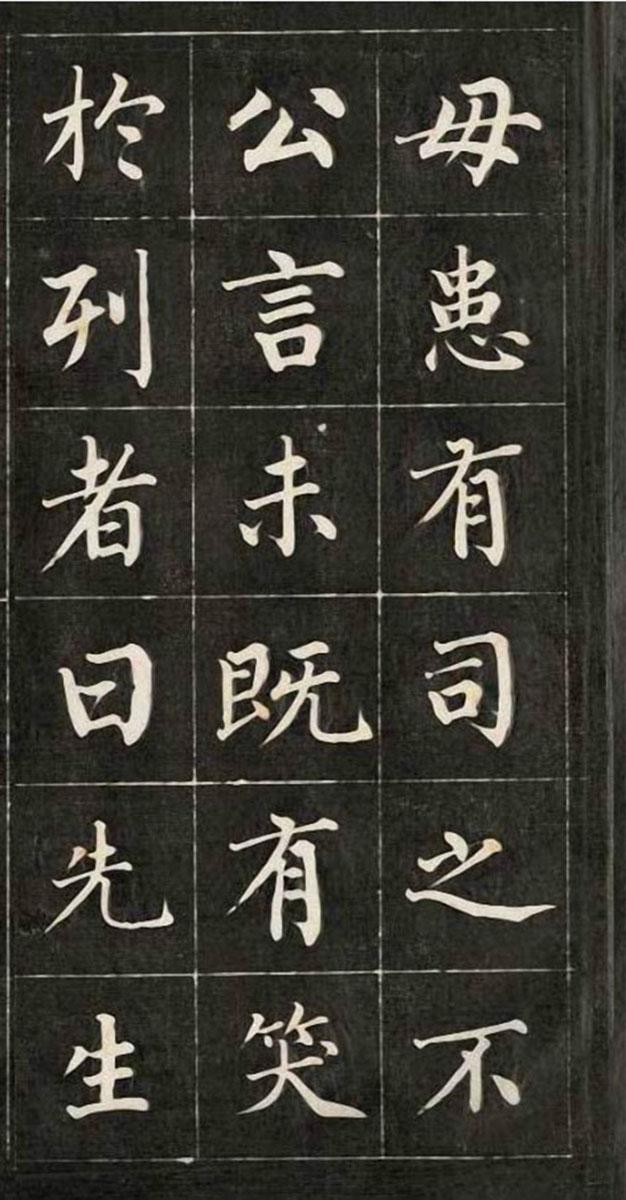 毋患有司之不
公言未既有笑
於列者曰先生